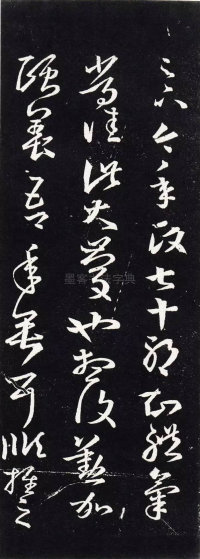 足下今年政七十耶知體氣
常佳此大慶也想復懃加
頤養吾年垂耳順推之